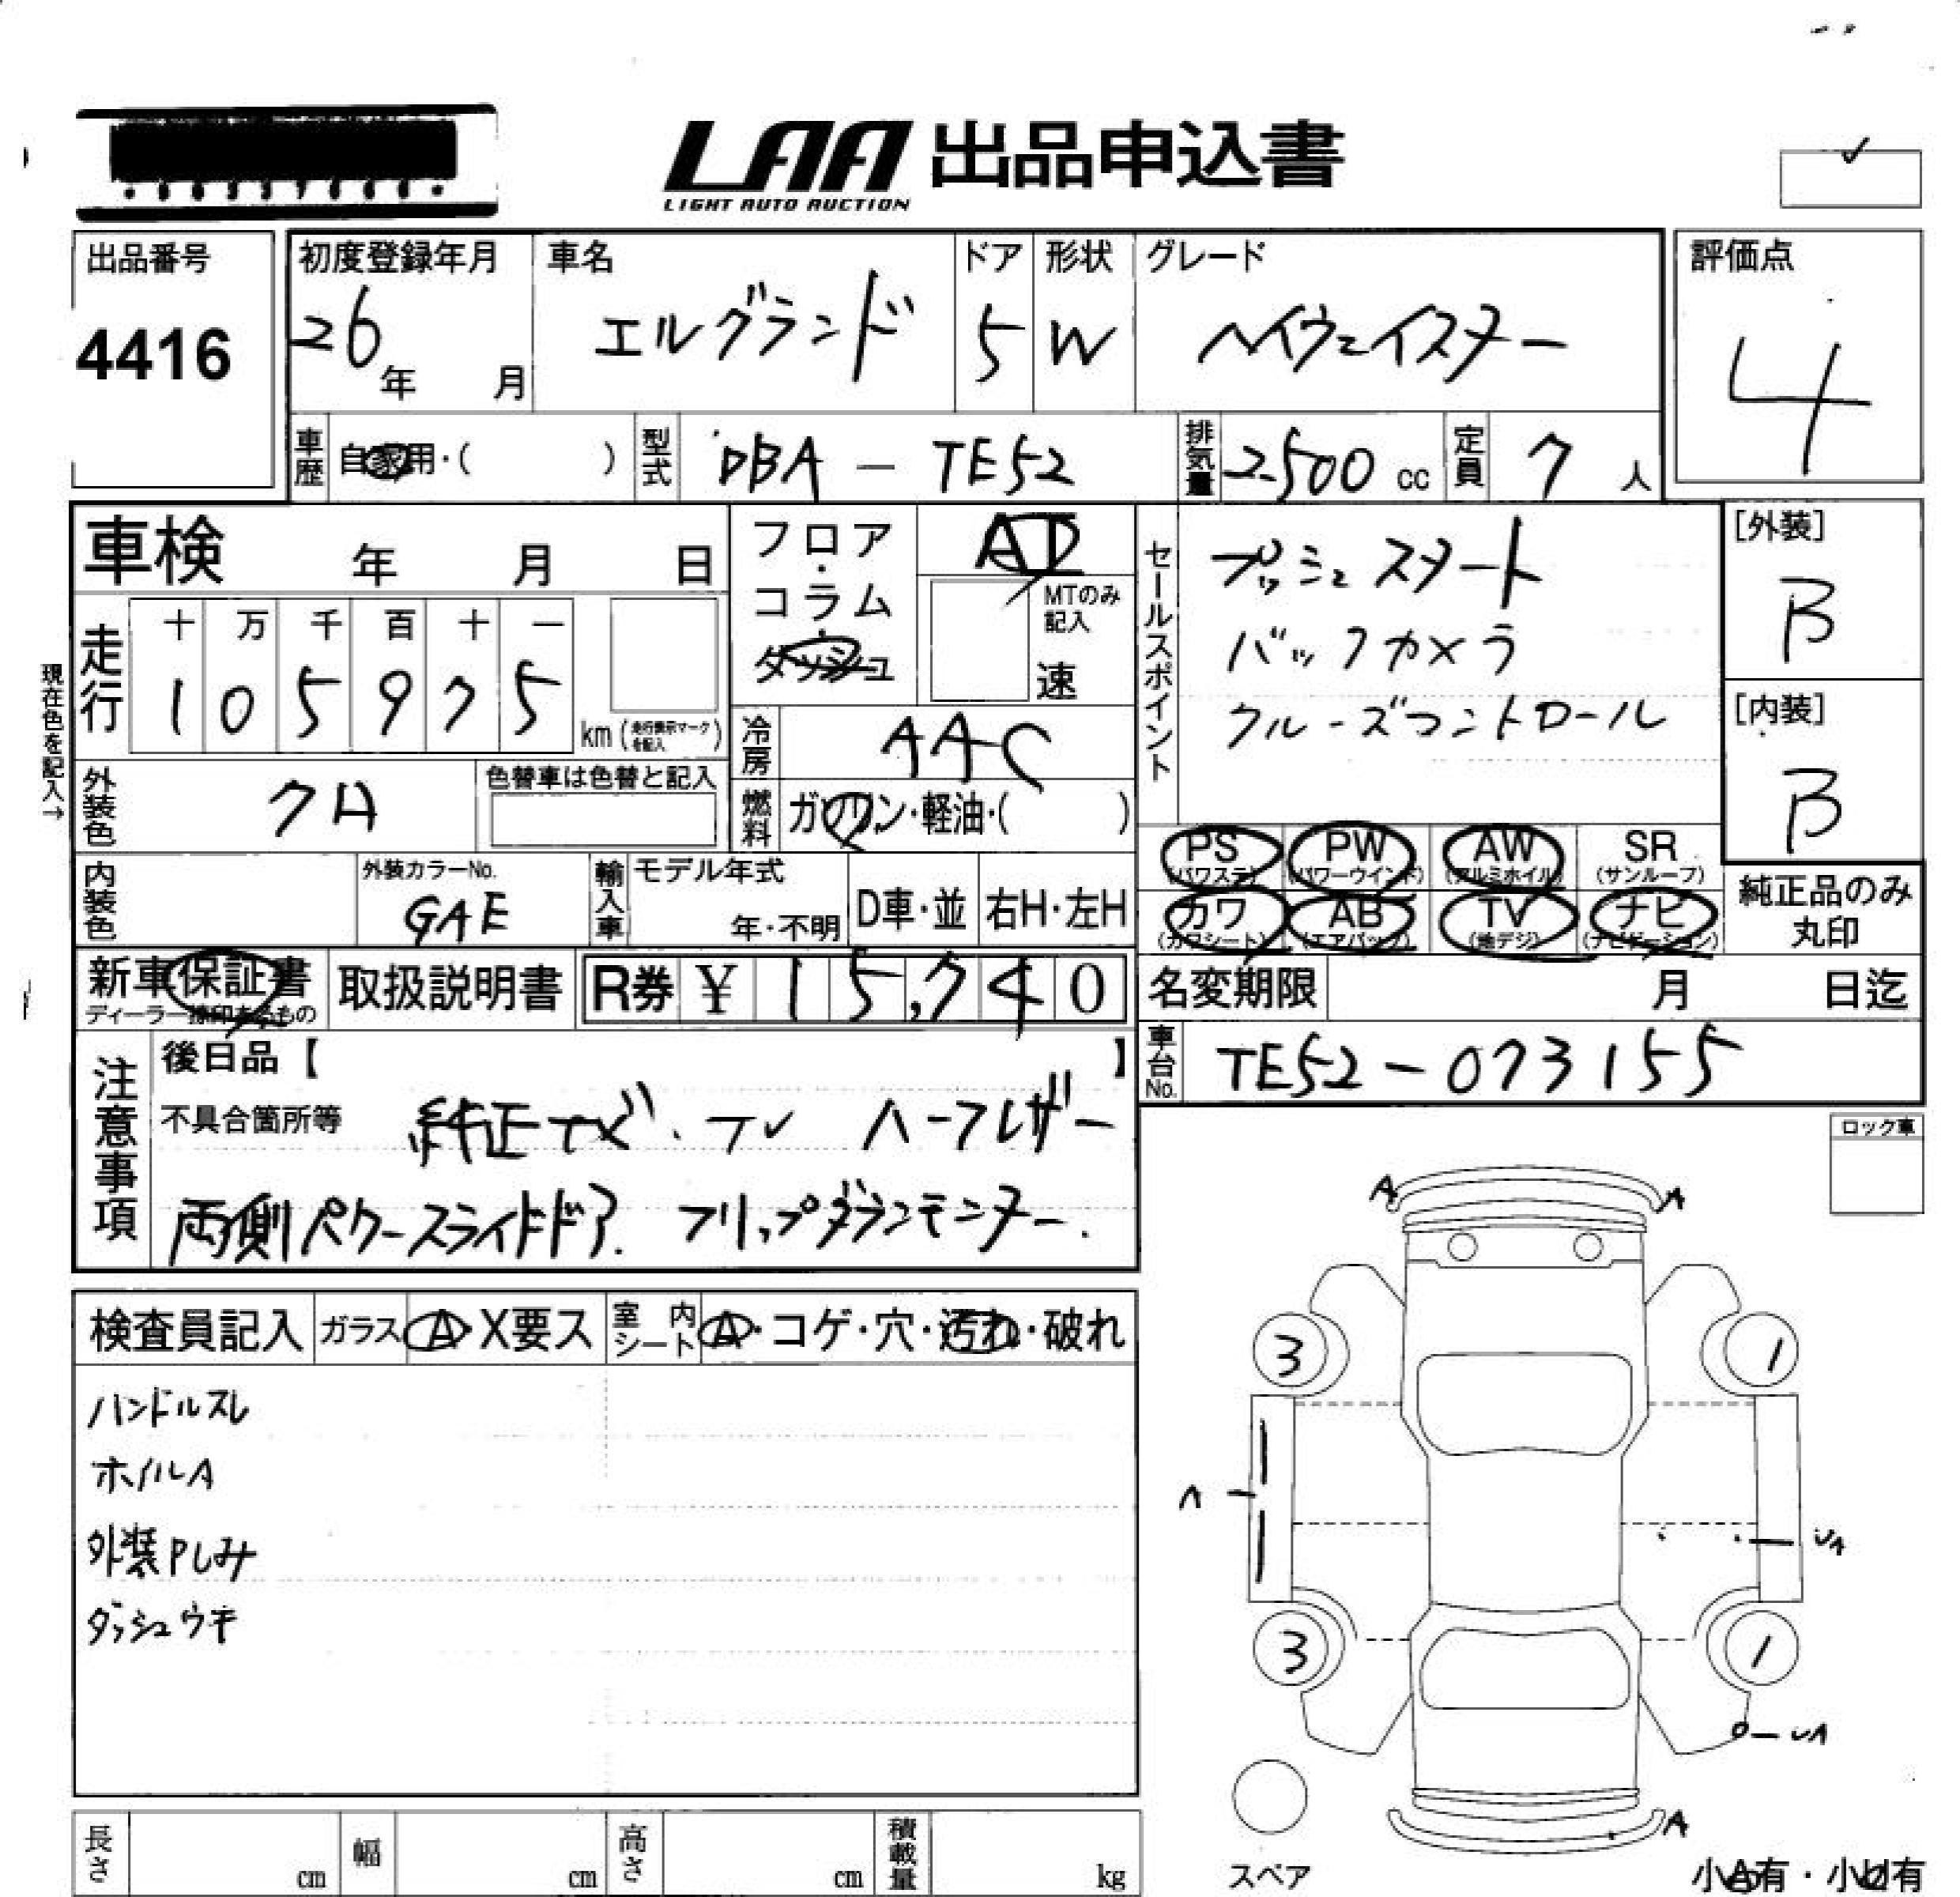 LAA 出品申込書
LIGHT AUTO AUCTION
出品番号
4416
初度登録年月
26年 月
車名
エルグランド
ドア
5
形状
W
グレード
ハイウェイスター
評価点
4
車歴 自家用・( )
型式 DBA - TE52
排気量 2500 cc
定員 7 人
車検 年 月 日
フロア・コラム・ダッシュ
AT
MTのみ記入
速
現在色を記入→
走行
十 万 千 百 十 一
1 0 5 9 7 5
km (走行表示マークを記入)
冷房 AAC
外装色 クロ
色替車は色替と記入
燃料 ガソリン・軽油・( )
セールスポイント
プッシュスタート
バックカメラ
クルーズコントロール
[外装]
B
[内装]
B
内装色
外装カラーNo.
GAE
輸入車
モデル年式
年・不明
D車・並
右H・左H
PS (パワステ)
PW (パワーウインド)
AW (アルミホイル)
SR (サンルーフ)
カワ (カワシート)
AB (エアバッグ)
TV (地デジ)
ナビ (ナビゲーション)
純正品のみ
丸印
新車保証書
ディーラー捺印あるもの
取扱説明書
R券 ¥ 15,740
名変期限 月 日迄
車台No. TE52-073155
注意事項
後日品【 】
不具合箇所等 純正ナビ・TV ハーフレザー
両側パワースライドドア. フリップダウンモニター.
ロック車
検査員記入
ガラス A・X要ス
室内シート A・コゲ・穴・汚れ・破れ
ハンドルスレ
ホイルA
外装Pしみ
ダッシュウキ
A A
3 1
A
UA
3 1
UA
A
スペア
小A有・小U有
長さ cm
幅 cm
高さ cm
積載量 kg